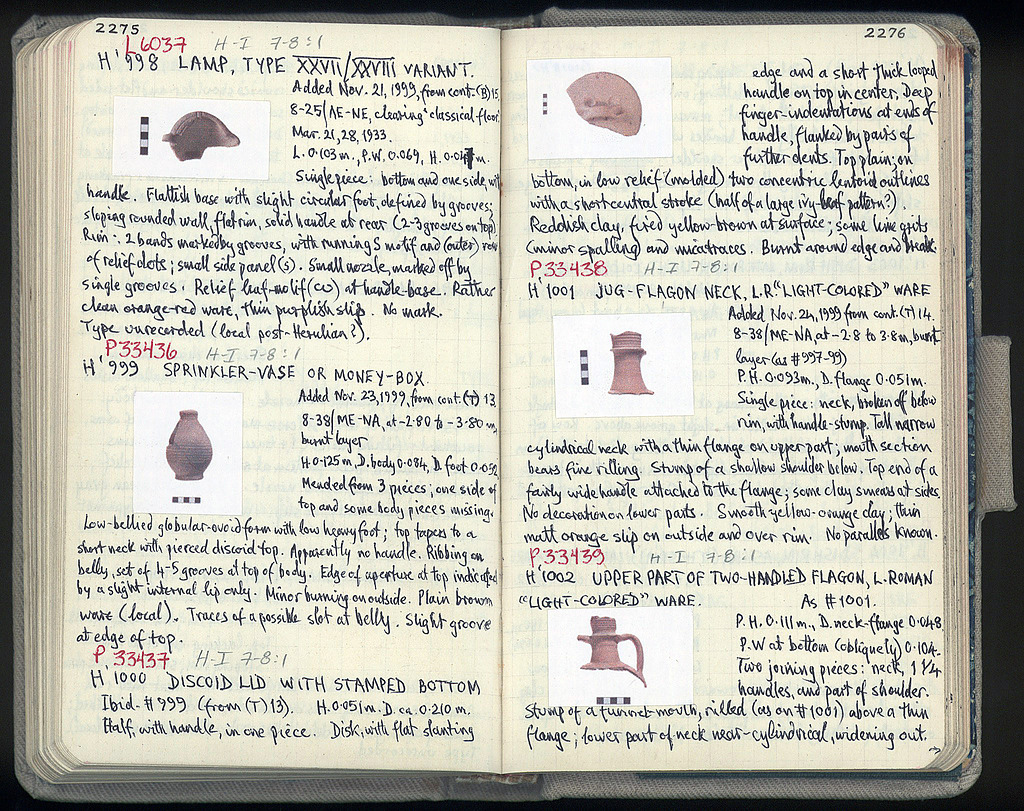 2275
L 6037 H-I 7-8:1
H'998 LAMP, TYPE XXVII/XXVIII VARIANT.
Added Nov. 21, 1999, from cont. (B) 15,
8-25/AE-NE, clearing "classical floor."
Mar. 21, 28, 1933.
L. 0·103 m., P.W. 0·069, H. 0·047 m.
Single piece: bottom and one side, with
handle. Flattish base with slight circular foot, defined by grooves;
sloping rounded wall, flat rim, solid handle at rear (2-3 grooves on top).
Rim: 2 bands marked by grooves, with running S motif and (outer) row
of relief dots; small side panel(s). Small nozzle, marked off by
single grooves. Relief leaf-motif (cw) at handle-base. Rather
clean orange-red ware, thin purplish slip. No mark.
Type unrecorded (local post-Herulian?).
P 33436 H-I 7-8:1
H'999 SPRINKLER-VASE OR MONEY-BOX.
Added Nov. 23, 1999, from cont. (T) 13,
8-38/ME-NA, at -2·80 to -3·80 m,
burnt layer
H. 0·125 m, D. body 0·084, D. foot 0·052
Mended from 3 pieces; one side of
top and some body pieces missing.
Low-bellied globular-ovoid form with low heavy foot; top tapers to a
short neck with pierced discoid top. Apparently no handle. Ribbing on
belly, set of 4-5 grooves at top of body. Edge of aperture at top indicated
by a slight internal lip only. Minor burning on outside. Plain brown
ware (local). Traces of a possible slot at belly. Slight groove
at edge of top.
P. 33437 H-I 7-8:1
H'1000 DISCOID LID WITH STAMPED BOTTOM
Ibid. #999 (from (T) 13). H. 0·051 m. D. ca. 0·210 m.
Half, with handle, in one piece. Disk, with flat slanting
2276
edge and a short thick looped
handle on top in center; Deep
finger-indentations at ends of
handle, flanked by parts of
further dents. Top plain; on
bottom, in low relief (molded) two concentric lentoid outlines
with a short central stroke (half of a large ivy-leaf pattern?).
Reddish clay, fired yellow-brown at surface; some lime grits
(minor spalling) and mica traces. Burnt around edge and break.
P. 33438 H-I 7-8:1
H'1001 JUG-FLAGON NECK, L.R. "LIGHT-COLORED" WARE
Added Nov. 24, 1999 from cont. (T) 14.
8-38/ME-NA, at -2·8 to 3·8 m, burnt
layer (as #997-99)
P.H. 0·093m., D. flange 0·051m.
Single piece: neck, broken off below
rim, with handle-stump. Tall narrow
cylindrical neck with a thin flange on upper part; mouth section
bears fine rilling. Stump of a shallow shoulder below. Top end of a
fairly wide handle attached to the flange; some clay smears at sides.
No decoration on lower parts. Smooth yellow-orange clay; thin
matt orange slip on outside and over rim. No parallels known.
P. 33439 H-I 7-8:1
H'1002 UPPER PART OF TWO-HANDLED FLAGON, L. ROMAN
"LIGHT-COLORED" WARE. As #1001.
P.H. 0·111 m., D. neck-flange 0·048
P.W at bottom (obliquely) 0·104.
Two joining pieces: neck, 1 1/4
handles, and part of shoulder.
Stump of a funnel-mouth, rilled (as on #1001) above a thin
flange; lower part of neck near-cylindrical, widening out.
→